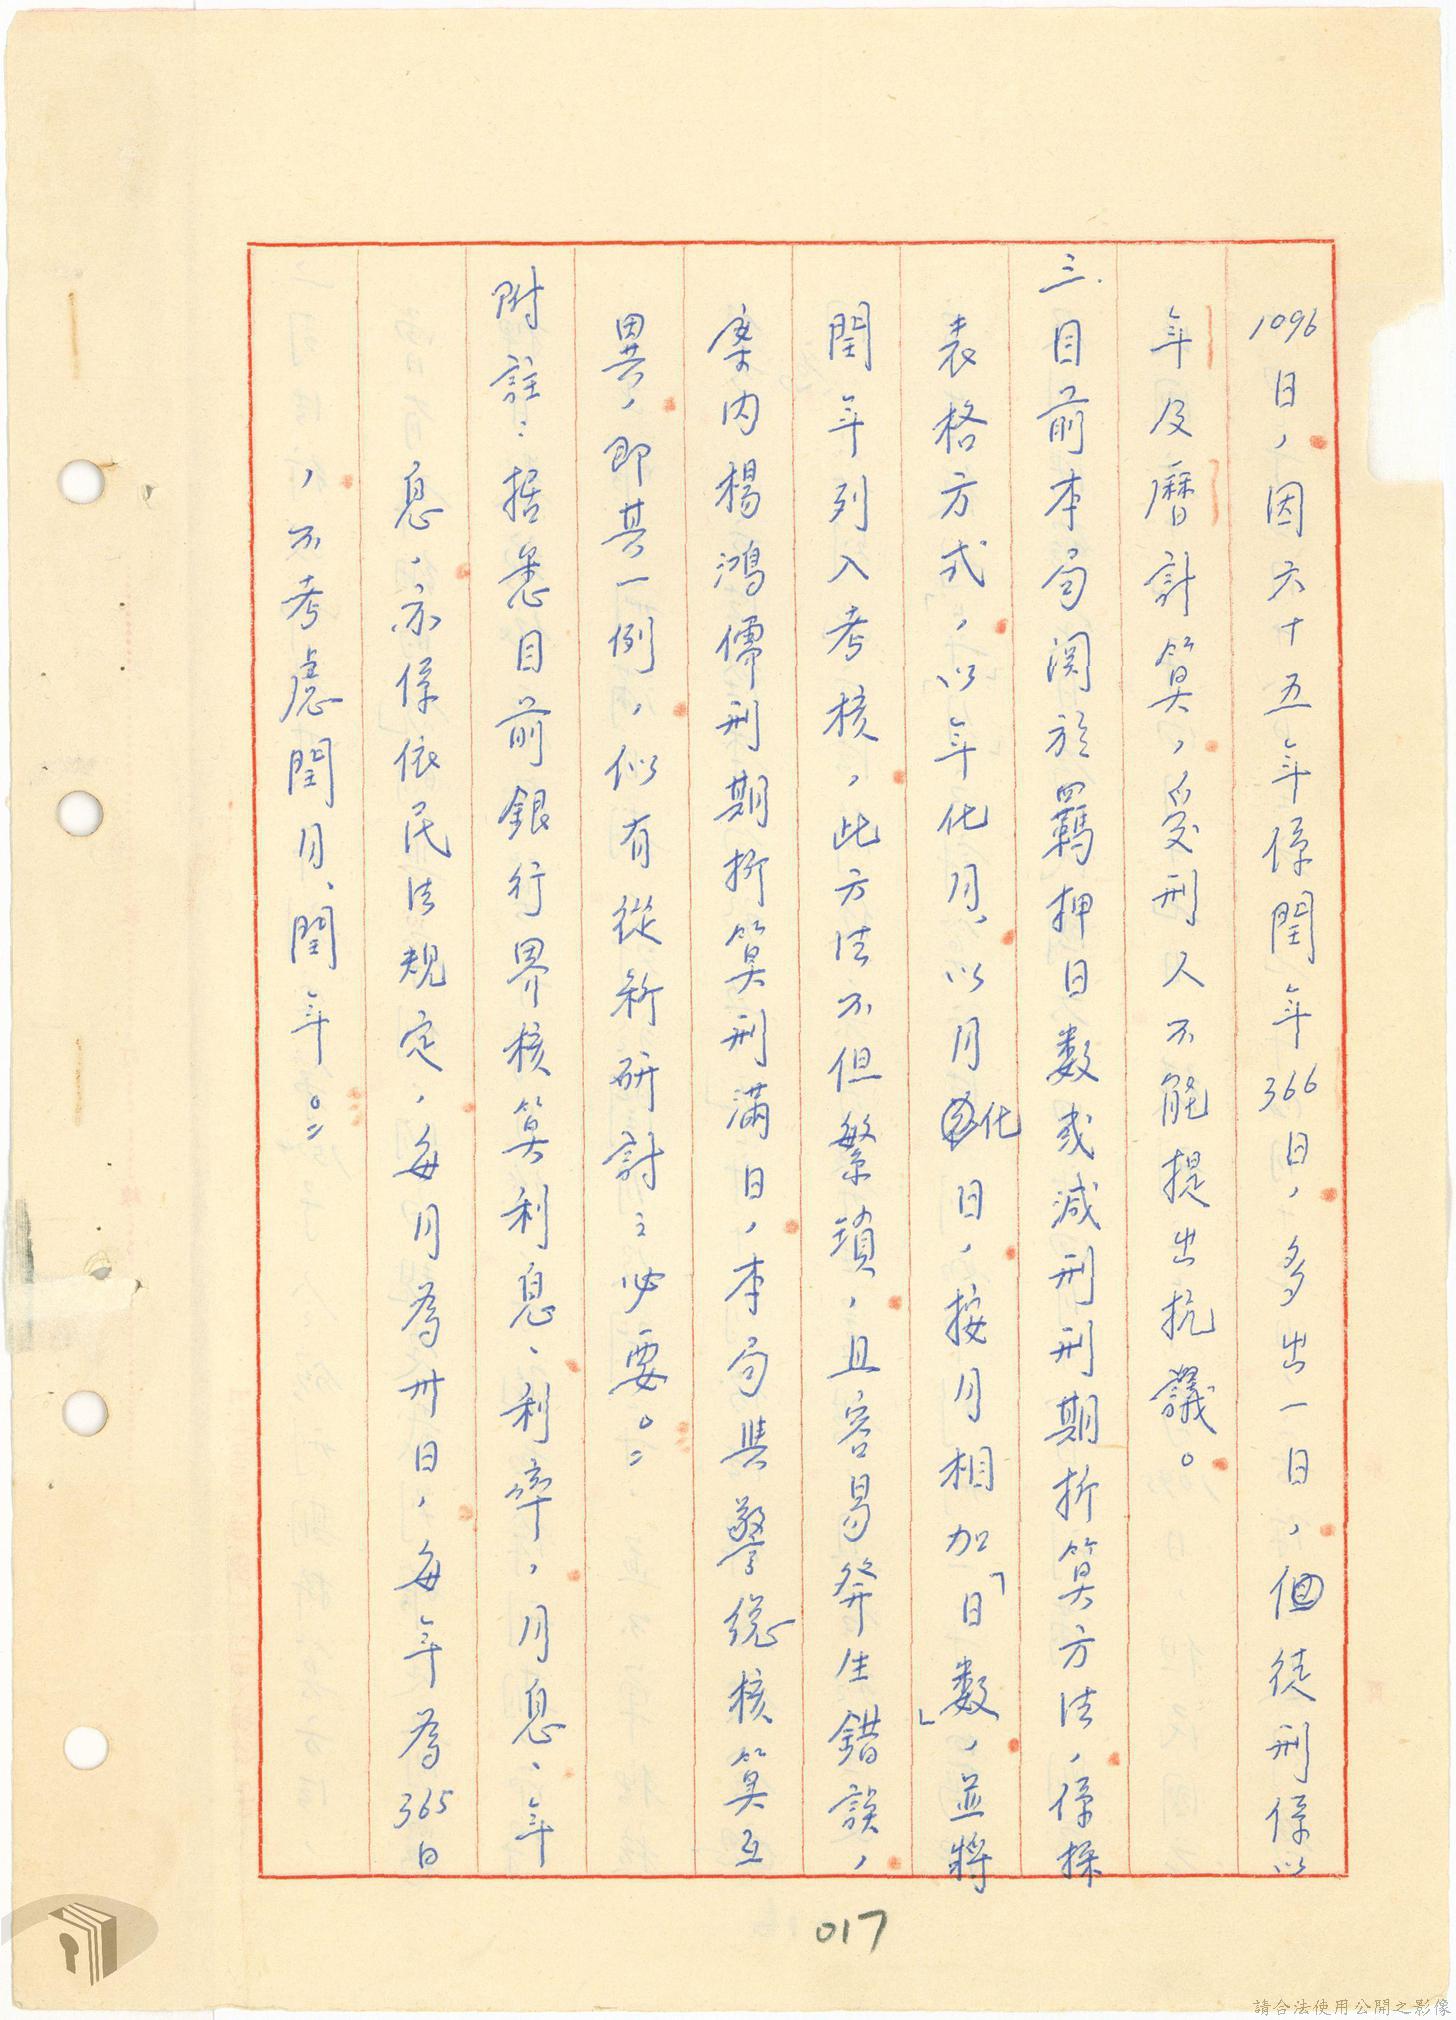 1096日，因六十五年係閏年366日，多出一日，但徒刑係以
年及曆計算，受刑人不能提出抗議。
三.目前本局関於羈押日数或減刑刑期折算方法，係採
表格方式，以年化月、以月化日，按月相加「日数」，並将
閏年列入考核，此方法不但繁瑣，且容易發生錯誤，
案内楊鴻儒刑期折算刑滿日，本局與警総核算互
異，即其一例，似有從新研討之必要。=
附註：据悉目前銀行界核算利息、利率，月息、年
息，亦係依民法規定，每月為卅日，每年為365日
，不考慮閏月、閏年。=
017
請合法使用公開之影像